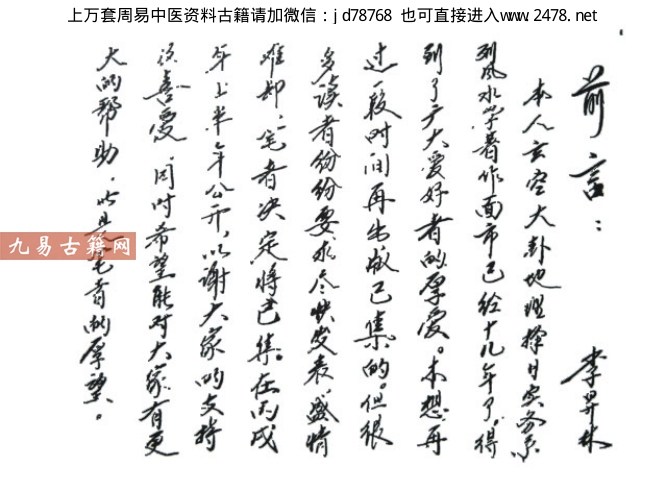 上万套周易中医资料古籍请加微信：jd78768 也可直接进入www.2478.net
前言：
李昇林
本人玄空大卦地理择日实务系
列风水学著作面市已经十几年了。得
到了广大爱好者的厚爱。未想再
过一段时间再出版已集的。但很
多读者份份要求尽快发表，盛情
难却，宅者决定将已集。在丙戌
年上半年公开，以谢大家的支持
和喜爱，同时希望能对大家有更
大的帮助，此是宅者的厚望。
九易古籍网